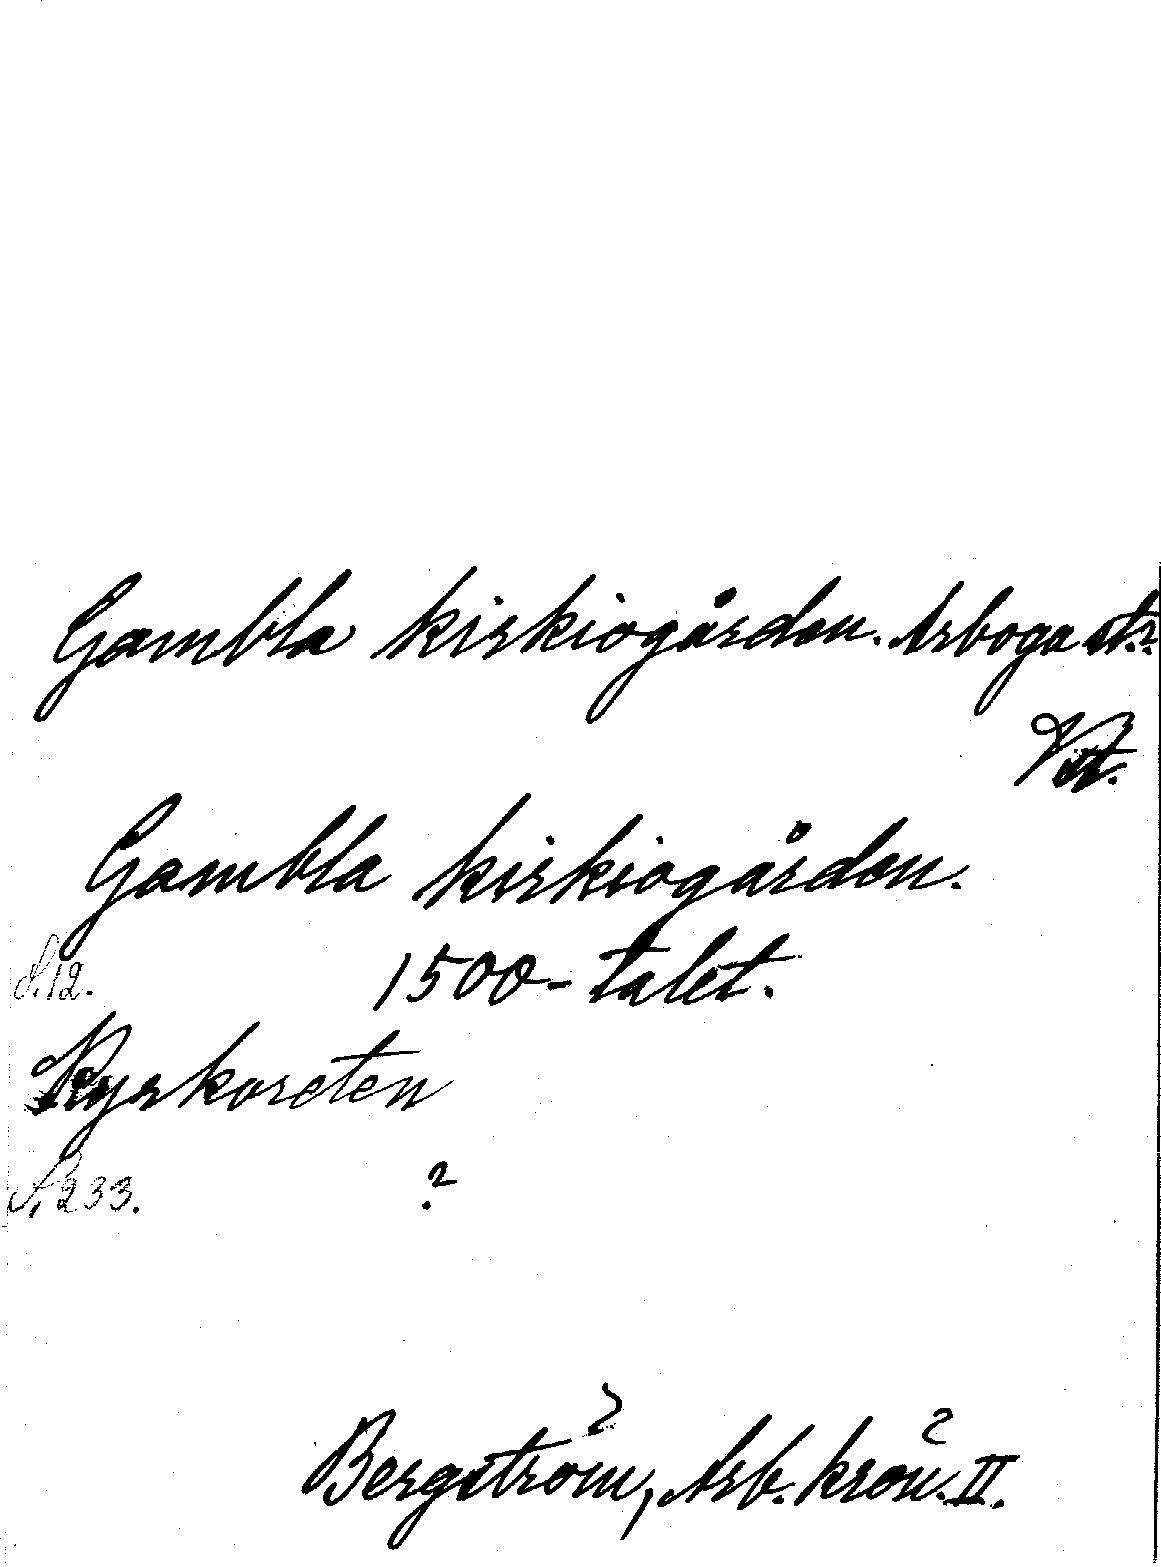 Gambla kirkiogården. Arboga st.
Vst.
Gambla kirkiogården.
S. 12. 1500-talet.
Kyrkoreten
S. 233. ?
Bergström, Arb. krön. II.